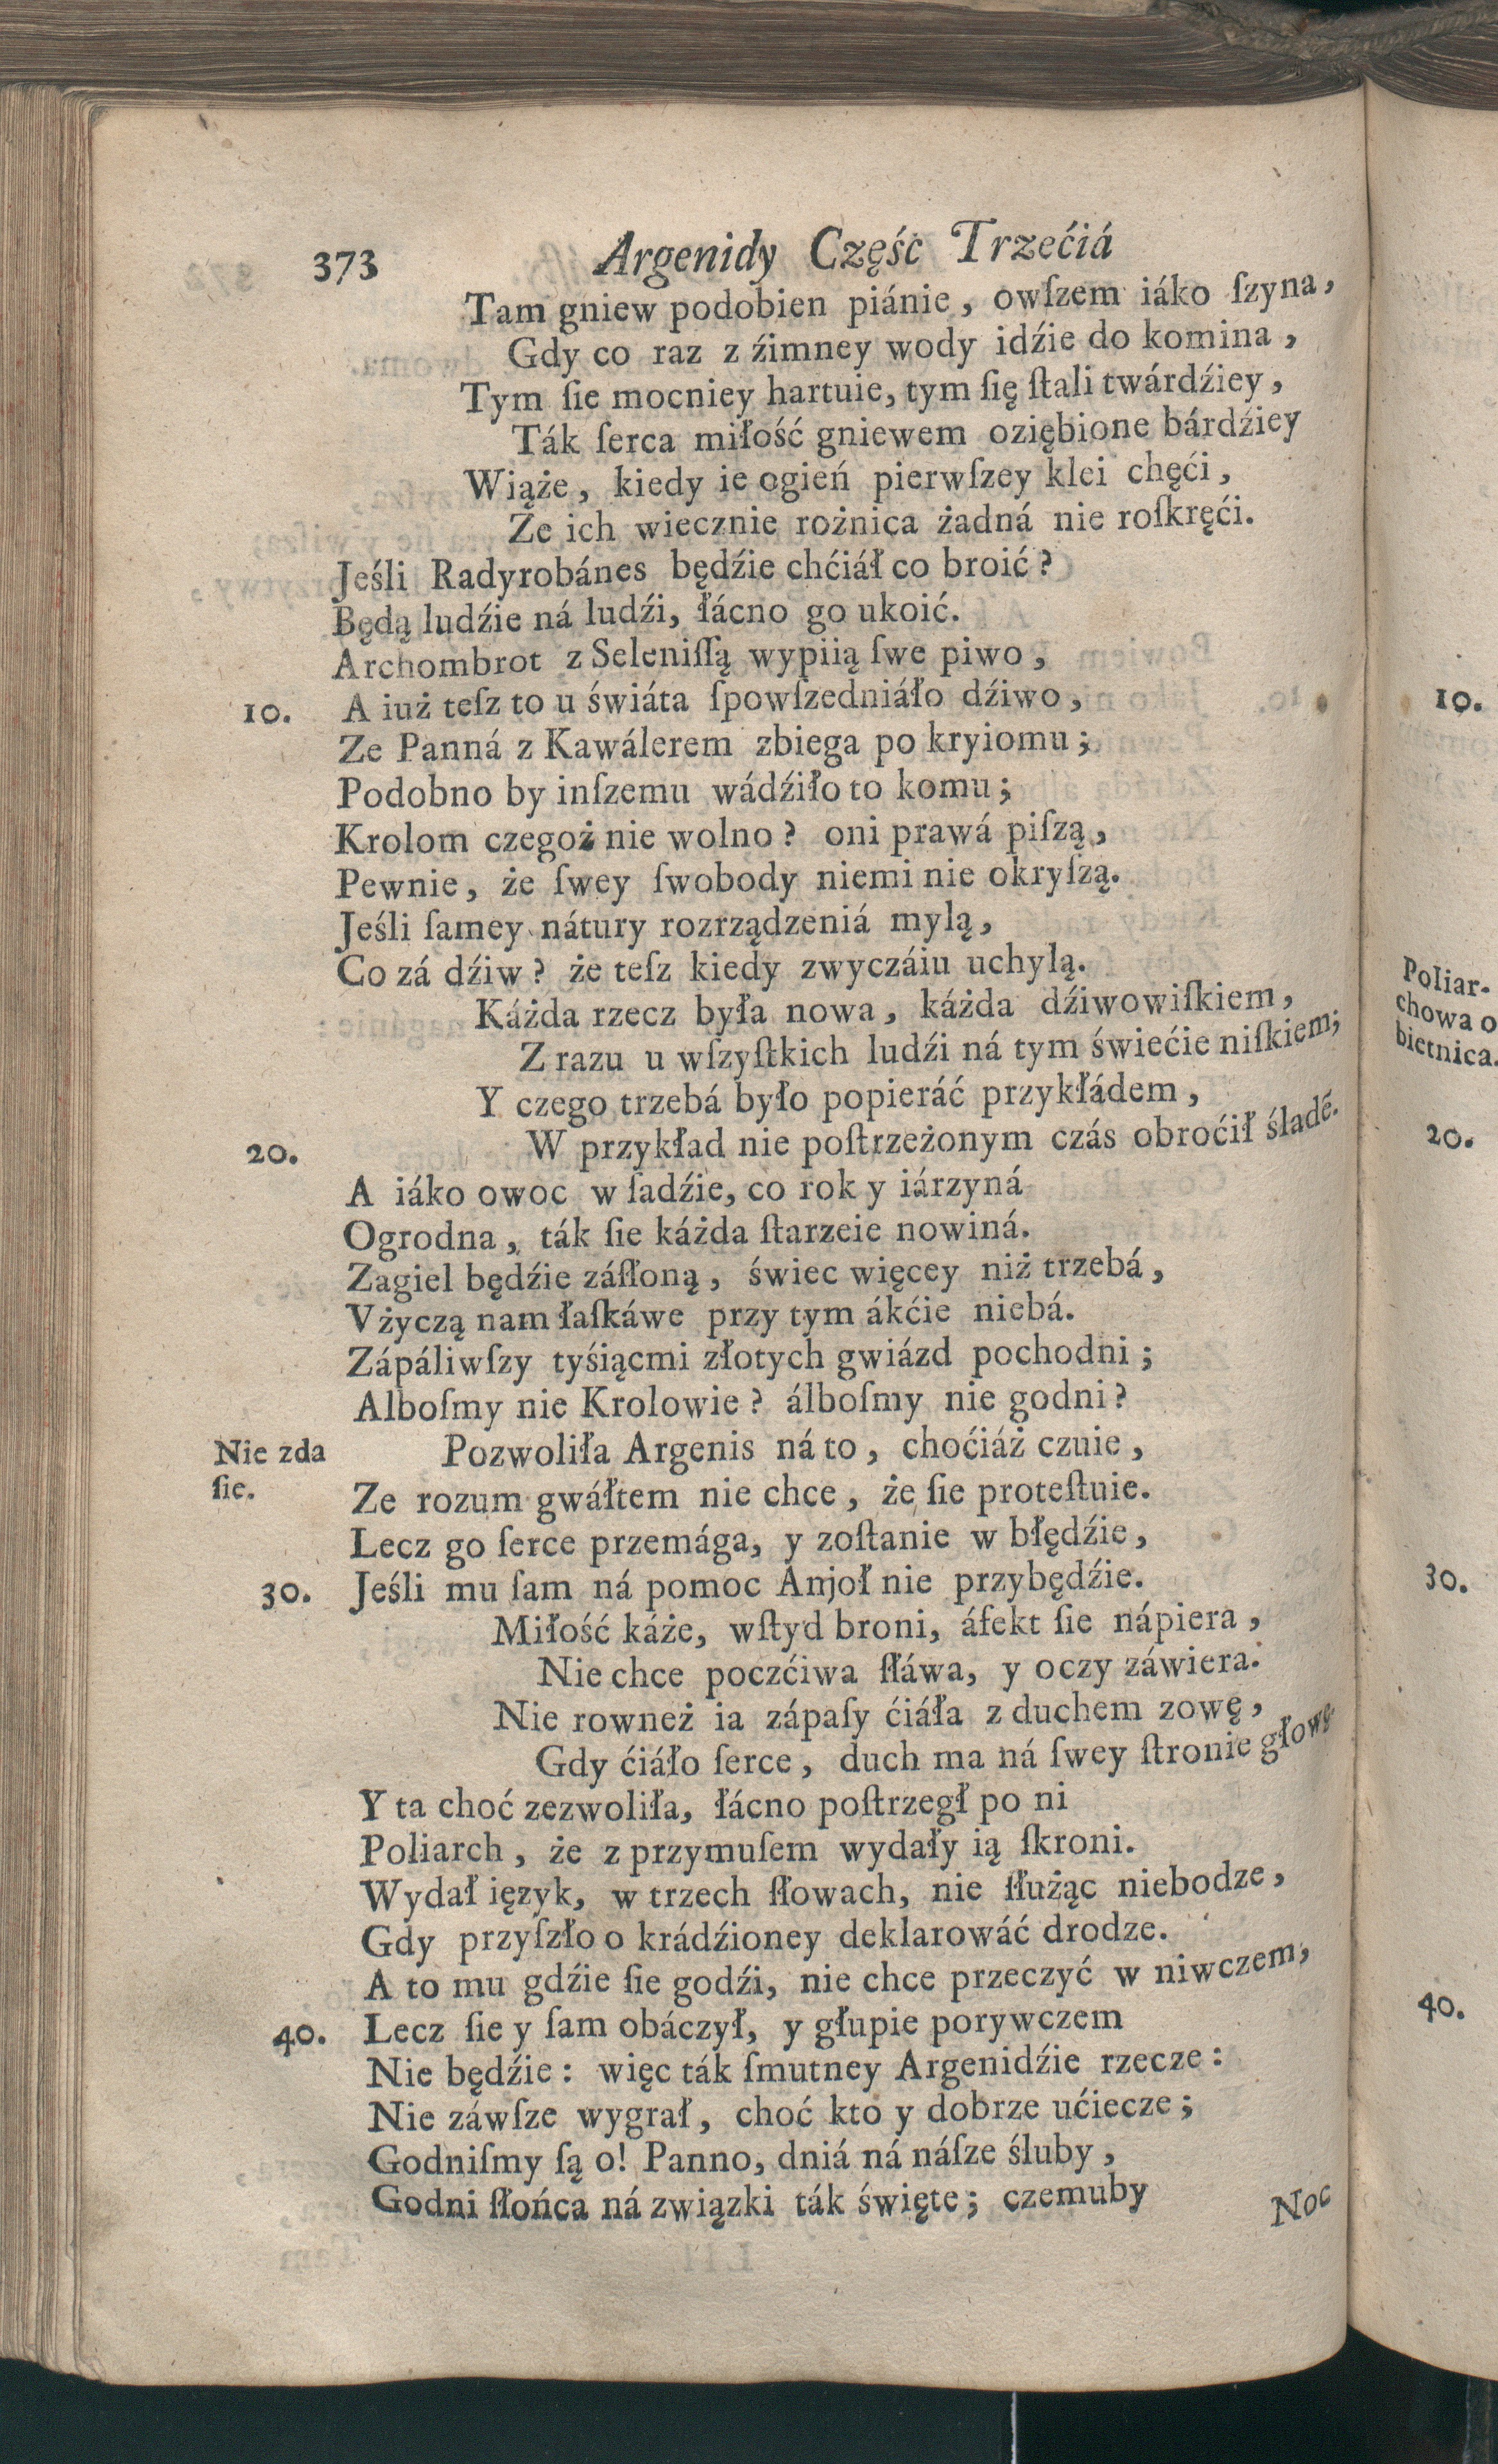 373 Argenidy Część Trzećiá
Tam gniew podobien piánie, owſzem iáko ſzyna,
Gdy co raz z źimney wody idźie do komina,
Tym ſie mocniey hartuie, tym ſię ſtali twárdźiey,
Ták ſerca miłość gniewem oziębione bárdźiey
Wiąże, kiedy ie ogień pierwſzey klei chęći,
Że ich wiecznie rożnica żadná nie roſkręći.
Jeśli Radyrobánes będźie chćiáł co broić?
Będą ludźie ná ludźi, łácno go ukoić.
Archombrot z Seleniſſą wypiią ſwe piwo,
10. A iuż teſz to u świáta ſpowſzedniáło dźiwo,
Ze Panná z Kawálerem zbiega po kryiomu;
Podobno by inſzemu wádźiło to komu;
Krolom czegoż nie wolno? oni prawá piſzą,
Pewnie, że ſwey ſwobody niemi nie okryſzą.
Jeśli ſamey nátury rozrządzeniá mylą,
Co zá dźiw? że teſz kiedy zwyczáiu uchylą.
Káżda rzecz była nowa, káżda dźiwowiſkiem,
Z razu u wſzyſtkich ludźi ná tym świećie niſkiem;
Y czego trzebá było popieráć przykłádem,
20. W przykład nie poſtrzeżonym czás obroćił śladé.
A iáko owoc w ſadźie, co rok y iárzyná
Ogrodna, ták ſie káżda ſtarzeie nowiná.
Zagiel będźie záſłoną, świec więcey niż trzebá,
Vżyczą nam łaſkáwe przy tym ákćie niebá.
Zápáliwſzy tyśiącmi złotych gwiázd pochodni;
Alboſmy nie Krolowie? álboſmy nie godni?
Nie zda
ſie.
Pozwoliła Argenis ná to, choćiáż czuie,
Ze rozum gwáłtem nie chce, że ſie proteſtuie.
Lecz go ſerce przemága, y zoſtanie w błędźie,
30. Jeśli mu ſam ná pomoc Anjoł nie przybędźie.
Miłość káże, wſtyd broni, áfekt ſie nápiera,
Nie chce poczćiwa ſłáwa, y oczy záwiera.
Nie rownież ia zápaſy ćiáła z duchem zowę,
Gdy ćiáło ſerce, duch ma ná ſwey ſtronie głowę
Y ta choć zezwoliła, łácno poſtrzegł po ni
Poliarch, że z przymuſem wydały ią ſkroni.
Wydał ięzyk, w trzech ſłowach, nie ſłużąc niebodze,
Gdy przyſzło o krádźioney deklarowáć drodze.
A to mu gdźie ſie godźi, nie chce przeczyć w niwczem,
40. Lecz ſie y ſam obáczył, y głupie porywczem
Nie będźie: więc ták ſmutney Argenidźie rzecze:
Nie záwſze wygrał, choć kto y dobrze ućiecze;
Godniſmy ſą o! Panno, dniá ná náſze śluby,
Godni ſłońca ná związki ták święte; czemuby
Noc
10.
Poliar-
chowa o
bietnica.
20.
30.
40.